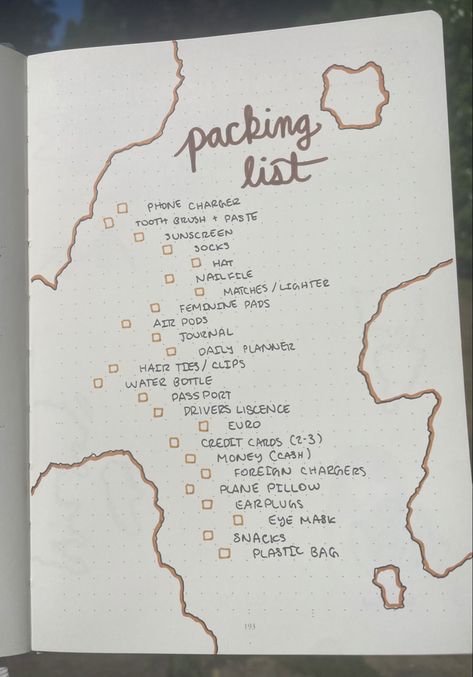 packing
list
PHONE CHARGER
TOOTH BRUSH + PASTE
SUNSCREEN
SOCKS
HAT
NAIL FILE
MATCHES / LIGHTER
FEMININE PADS
AIR PODS
JOURNAL
DAILY PLANNER
HAIR TIES / CLIPS
WATER BOTTLE
PASSPORT
DRIVERS LISCENCE
EURO
CREDIT CARDS (2-3)
MONEY (CASH)
FOREIGN CHARGERS
PLANE PILLOW
EARPLUGS
EYE MASK
SNACKS
PLASTIC BAG
193